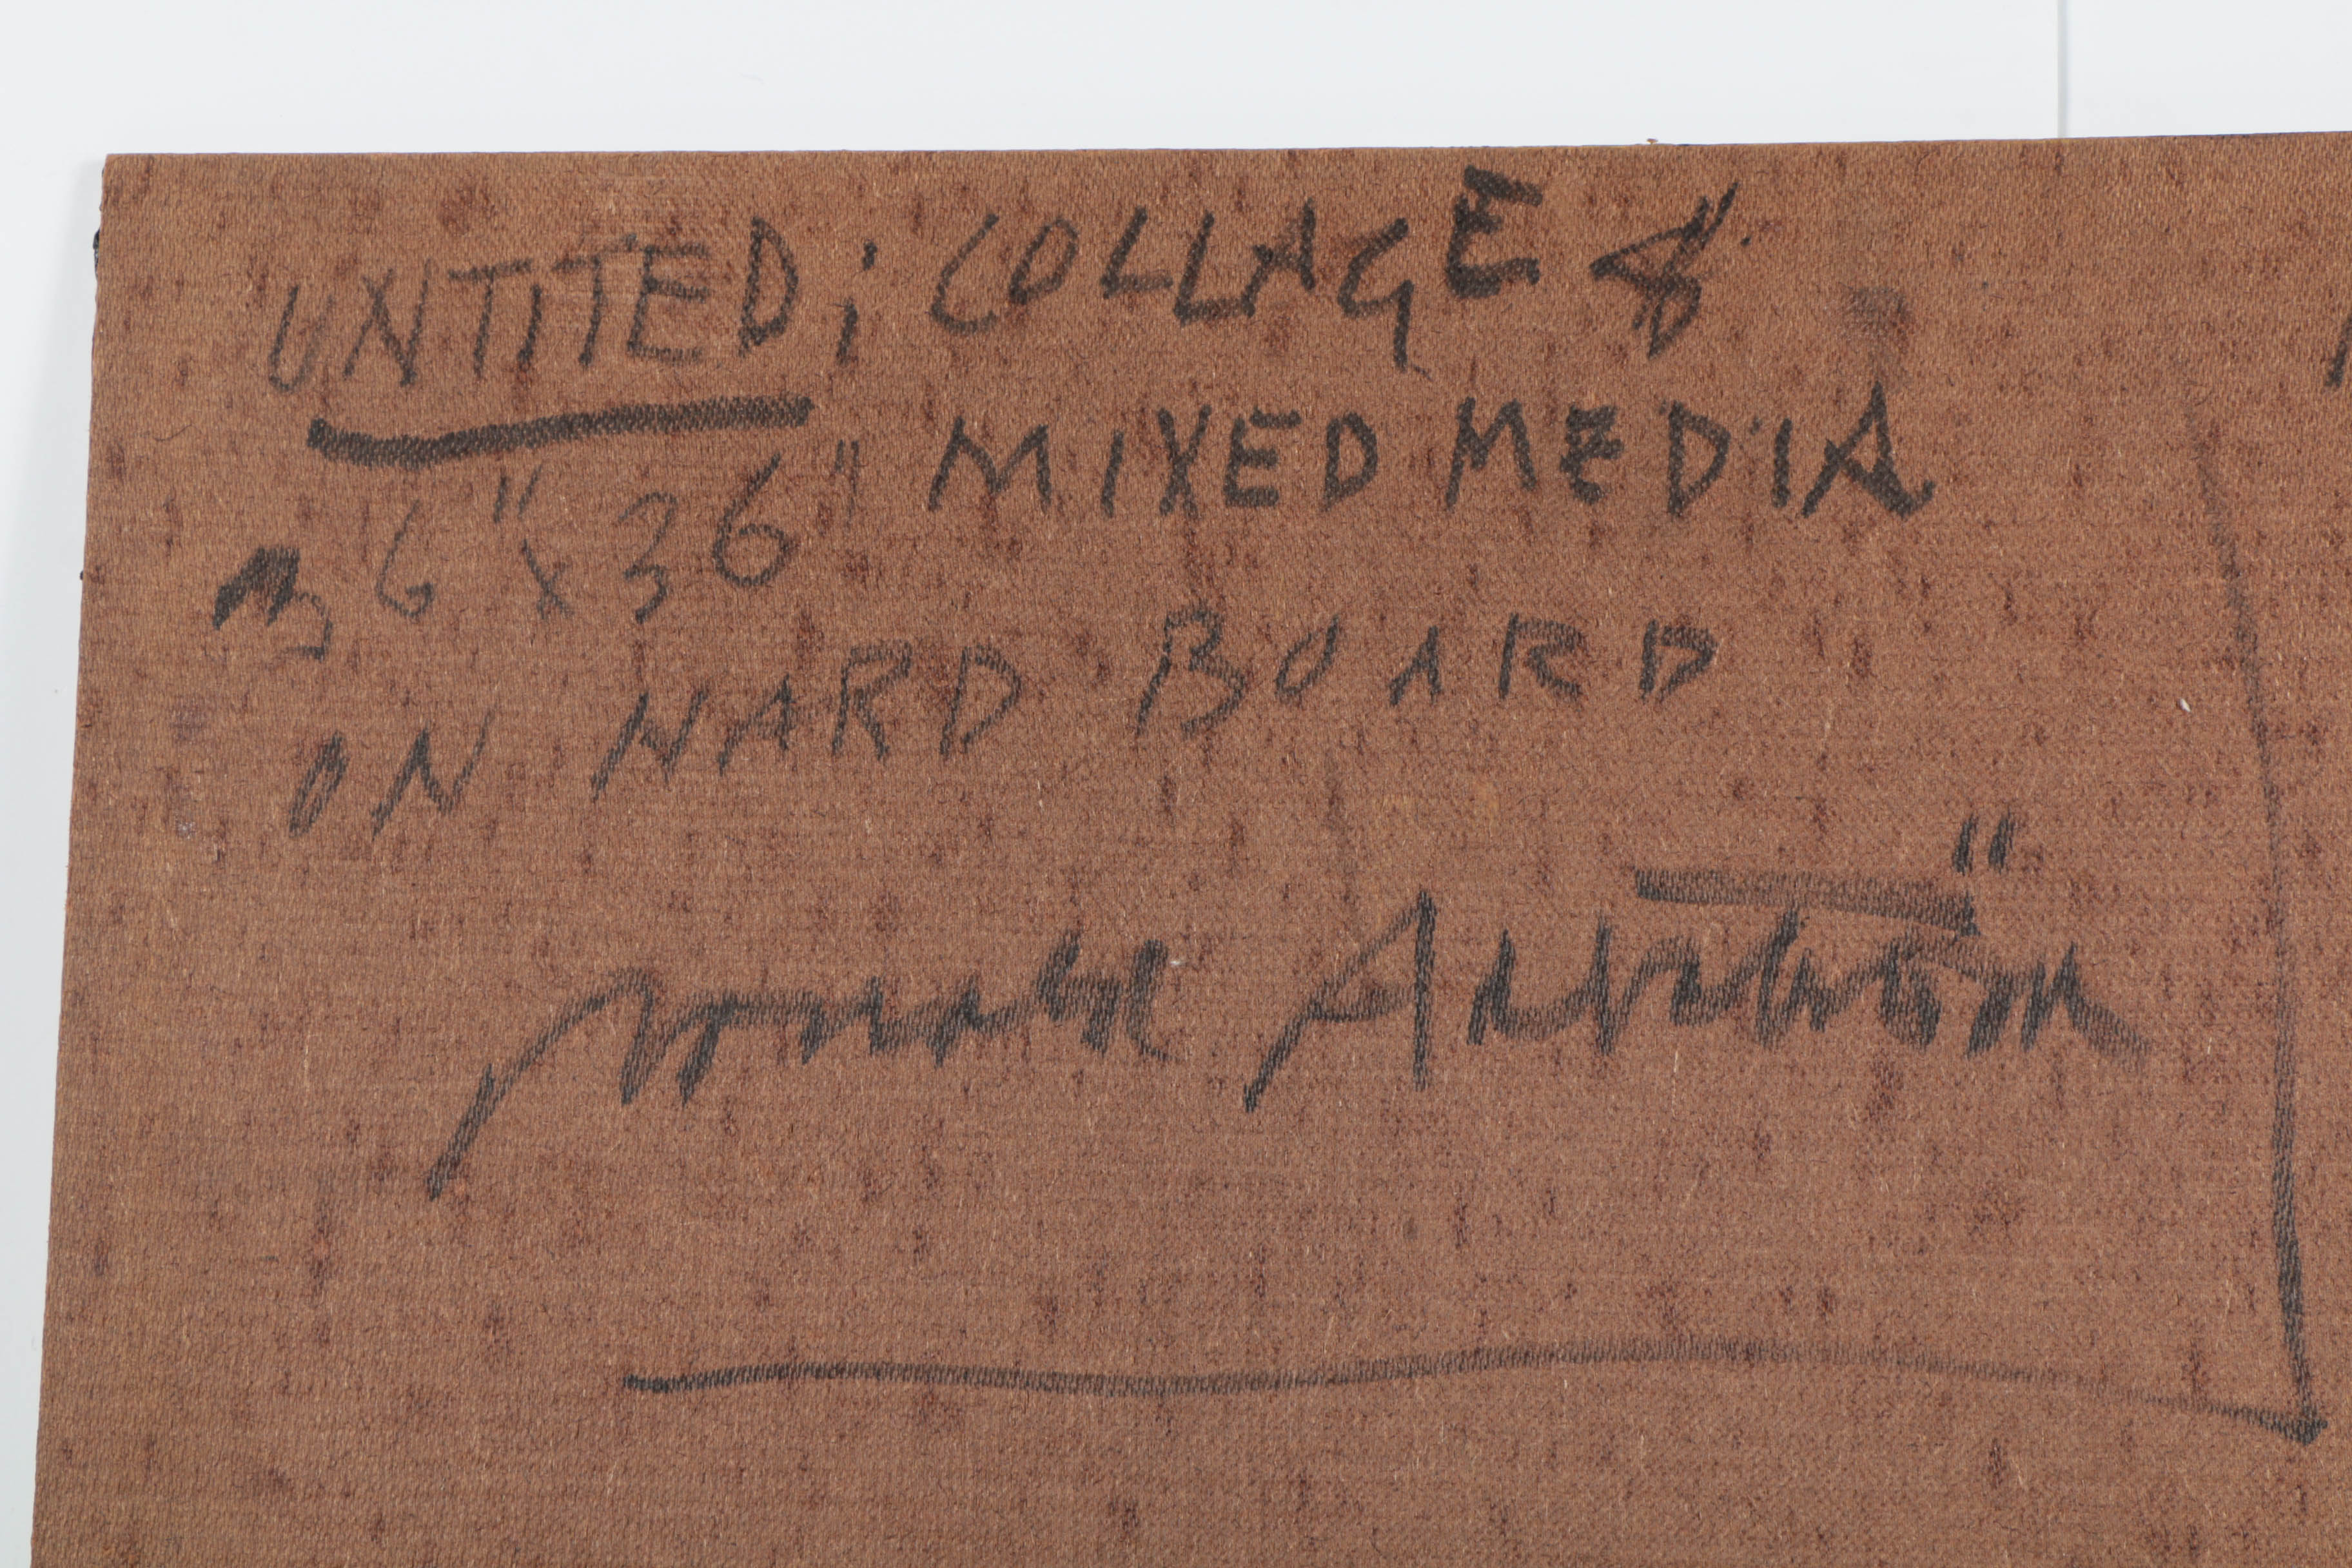 UNTITED; COLLAGE &
MIXED MEDIA
36" x 36"
ON HARD BOARD